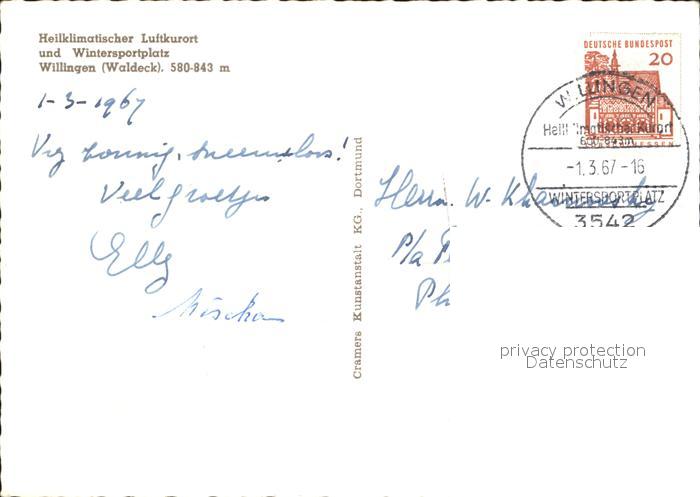 Heilklimatischer Luftkurort
und Wintersportplatz
Willingen (Waldeck). 580-843 m
1-3-1967
sneeuwloos!
Veel groetjes
Elly
Mischa
Cramers Kunstanstalt KG., Dortmund
DEUTSCHE BUNDESPOST
20
HESSEN
WILLINGEN
Heilklimatischer Kurort
580-843m
-1.3.67-16
WINTERSPORTPLATZ
3542
Herrn W.
P/a
privacy protection
Datenschutz